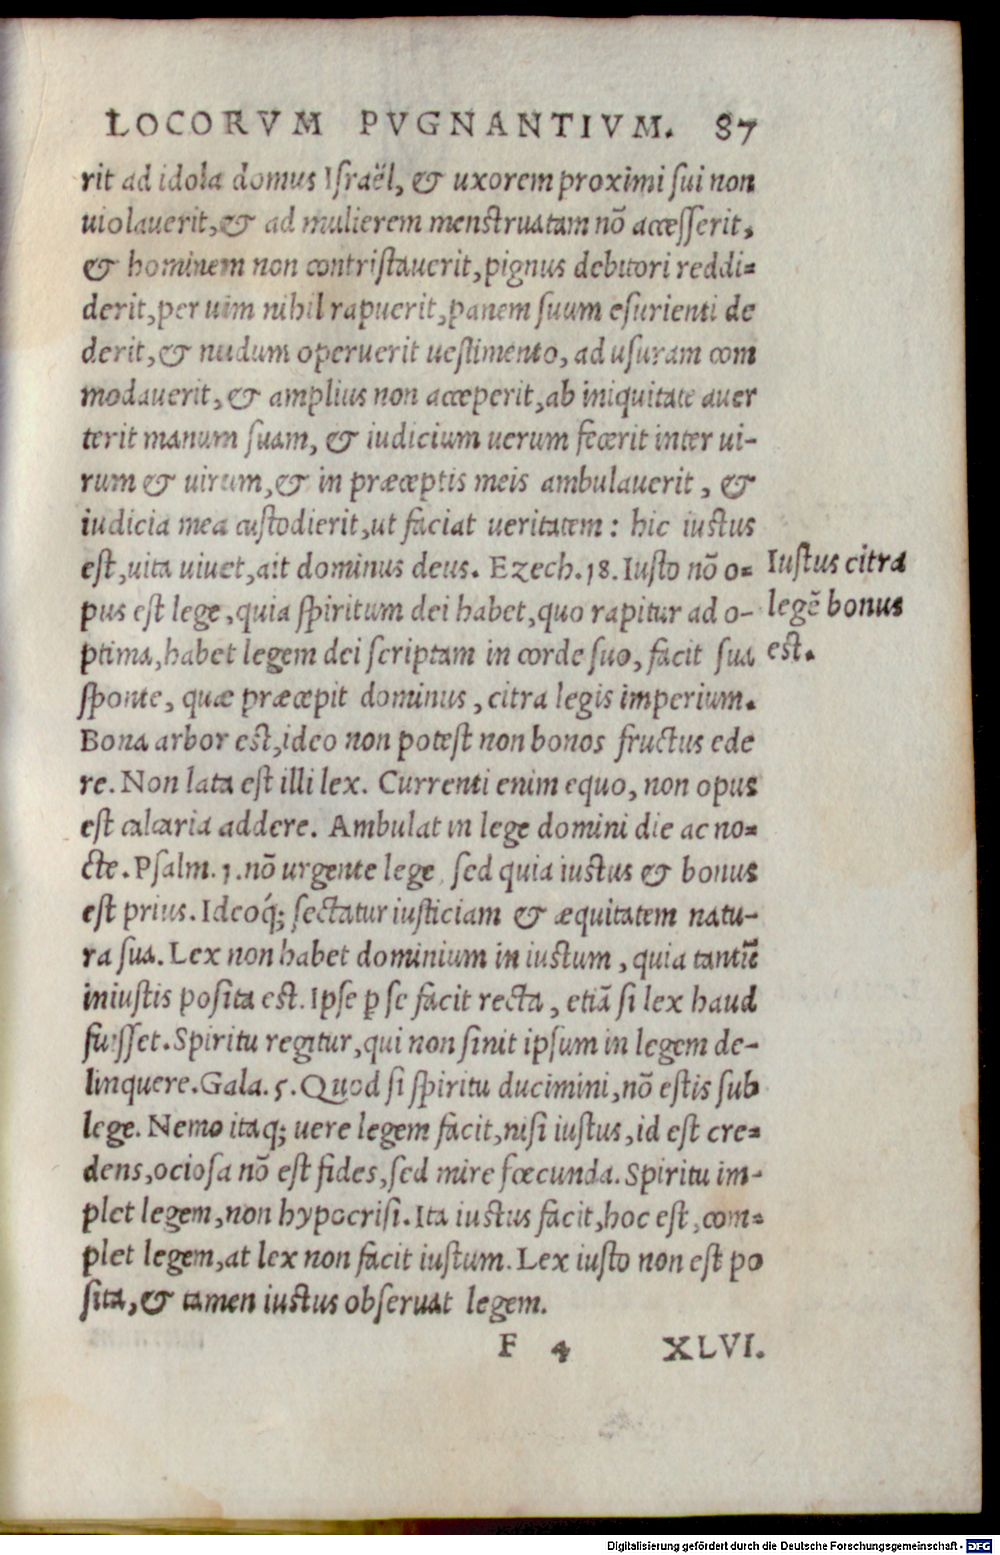 LOCORVM PVGNANTIVM. 87
rit ad idola domus Iſraël, & uxorem proximi ſui non
uiolauerit, & ad mulierem menſtruatam nō acceſſerit,
& hominem non contriſtauerit, pignus debitori reddi=
derit, per uim nihil rapuerit, panem ſuum eſurienti de
derit, & nudum operuerit ueſtimento, ad uſuram com
modauerit, & amplius non acceperit, ab iniquitate auer
terit manum ſuam, & iudicium uerum fecerit inter ui-
rum & uirum, & in præceptis meis ambulauerit, &
iudicia mea cuſtodierit, ut faciat ueritatem: hic iuſtus
eſt, uita uiuet, ait dominus deus. Ezech. 18. Iuſto nō o=
pus eſt lege, quia ſpiritum dei habet, quo rapitur ad o-
ptima, habet legem dei ſcriptam in corde ſuo, facit ſua
ſponte, quæ præcepit dominus, citra legis imperium.
Bona arbor eſt, ideo non poteſt non bonos fructus ede
re. Non lata eſt illi lex. Currenti enim equo, non opus
eſt calcaria addere. Ambulat in lege domini die ac no=
cte. Pſalm. 1. nō urgente lege, ſed quia iuſtus & bonus
eſt prius. Ideoq́; ſectatur iuſticiam & æquitatem natu-
ra ſua. Lex non habet dominium in iuſtum, quia tantū
iniuſtis poſita eſt. Ipſe ꝑ ſe facit recta, etiā ſi lex haud
fuiſſet. Spiritu regitur, qui non ſinit ipſum in legem de-
linquere. Gala. 5. Quod ſi ſpiritu ducimini, nō eſtis ſub
lege. Nemo itaq; uere legem facit, niſi iuſtus, id eſt cre=
dens, ocioſa nō eſt fides, ſed mire fœcunda. Spiritu im-
plet legem, non hypocriſi. Ita iuſtus facit, hoc eſt, com=
plet legem, at lex non facit iuſtum. Lex iuſto non eſt po
ſita, & tamen iuſtus obſeruat legem.
F 4 XLVI.
Iuſtus citra
legē bonus
eſt.
Digitalisierung gefördert durch die Deutsche Forschungsgemeinschaft - DFG